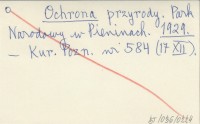 Ochrona przyrody. Park
Narodowy w Pieninach. 1929.
— Kur. Pozn. nr 584 (17 XII).